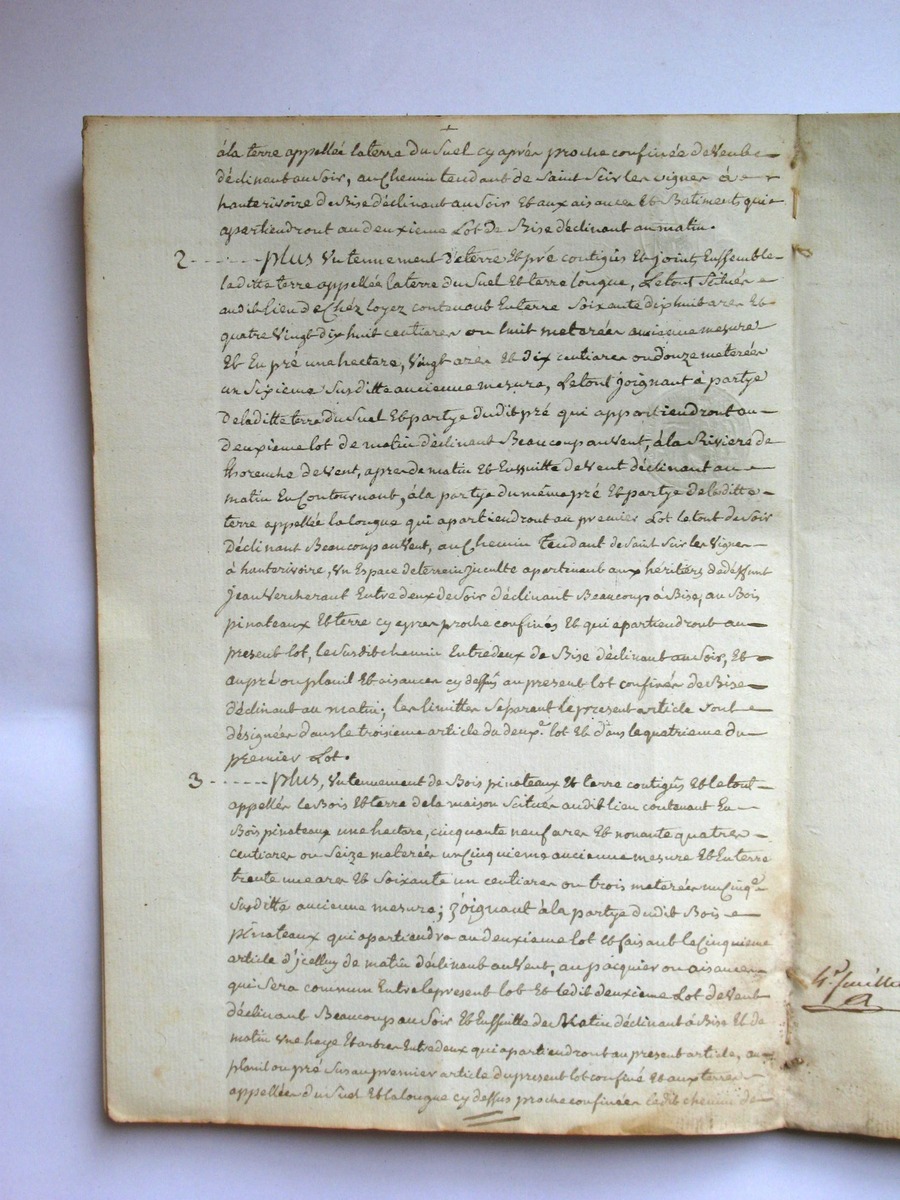 àla terre appellée laterre du Suel cy après proche confinée de Vent
déclinant au Soir, au Chemin tendant de Saint Scir les vignes à
hauterivoire de Bise déclinant au Soir Et aux aisances Et Batiments qui
apartiendront au deuxieme Lot de Bise déclinant au matin.
2 - - - - - plus Un tennement de terre Et pré contigus Et joints Ensemble
laditte terre appellée laterre du Suel Et terre longue, Le tout Scitués
audit lieu de Chéz loyez contenant En terre Soixante dix huit ares Et
quatre Vingt dix huit centiares ou huit meterées ancienne mesure
Et En pré une hectare, Vingt ares Et dix centiares ou douze meterées
un Sixieme Susditte ancienne mesure, Le tout joignant à partye
De laditte terre du Suel Et partye dudit pré qui appartiendront au
deuxieme lot de matin déclinant Beaucoup au Vent, à la Riviere de
thorenche de Vent, apres de matin Et Ensuitte de Vent déclinant au
matin En Contournant, à la partye du même pré Et partye de laditte
terre appellée la longue qui apartiendront au premier Lot le tout de Soir
Déclinant Beaucoup au Vent, au Chemin tendant de Saint Scir les Vignes
à hauterivoire, Un Espace de terrein Inculte apartenant aux heritiers de deffunt
Jean Vercherant Entre deux de Soir déclinant Beaucoup à Bise, au Bois
pinateaux Et terre cy apres proche confinés Et qui apartiendront au
present lot, le Susdit chemin Entredeux de Bise déclinant au Soir, Et
au pré ou planil Et aisances cy dessus au present lot confinés de Bise
déclinant au matin; les limittes Séparant le present article Sont
désignées dans le troisieme article du deux.e lot Et dans le quatrieme du
premier Lot.
3 - - - - - plus, Un tennement de Bois pinateaux Et terre contigus Et le tout
appellés le Bois Et terre de la maison Scitués audit lieu contenant En
Bois pinateaux une hectare, cinquante neuf ares Et nonante quatre
centiares ou Seize meterées un Cinquieme ancienne mesure Et En terre
trente une ares Et Soixante un centiares ou trois meterées un Cinq.e
Susditte ancienne mesure; joignant à la partye dudit Bois
pinateaux qui apartiendra au deuxieme lot Et faisant le Cinquieme
article d'jcelluy de matin déclinant au Vent, au pacquier ou aisances
qui Sera commun Entre le present lot Et ledit deuxieme Lot de Vent
déclinant Beaucoup au Soir Et Ensuitte de Matin déclinant à Bise Et de
matin Une haye Et arbres Entredeux qui apartiendront au present article, au
planil ou pré Sus au premier article du present lot confiné Et aux terres
appellées du Suel Et la longue cy dessus proche confinées ledit chemin de